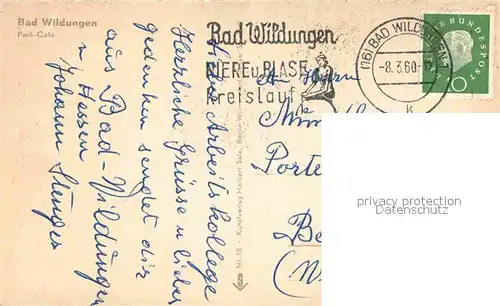 Bad Wildungen
Park-Café
Alter Arbeitskollege
Herzliche Grüsse u. lieber
gedenken sendet dir
aus Bad-Wildungen
n Hessen
Johann
Bad Wildungen
NIERE u BLASE
Kreislauf
(16) BAD WILDUNGEN 1
-8.3.60-
K
DEUTSCHE BUNDESPOST
10
An Herrn
Porte
Be
Nr. 15 - Kunstverlag Herbert Sala, Berlin-W
S
privacy protection
Datenschutz